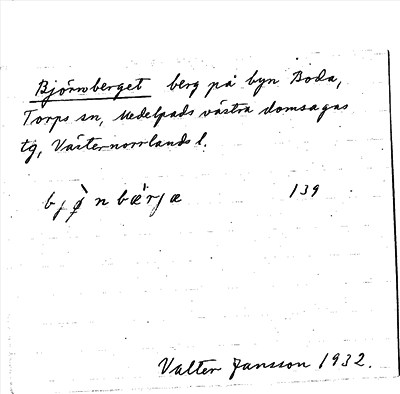 Björnberget berg på byn Boda,
Torps sn, Medelpads västra domsagas
tg, Västernorrlands l.
bjø̀nbæ̀rjæ 139
Valter Jansson 1932.